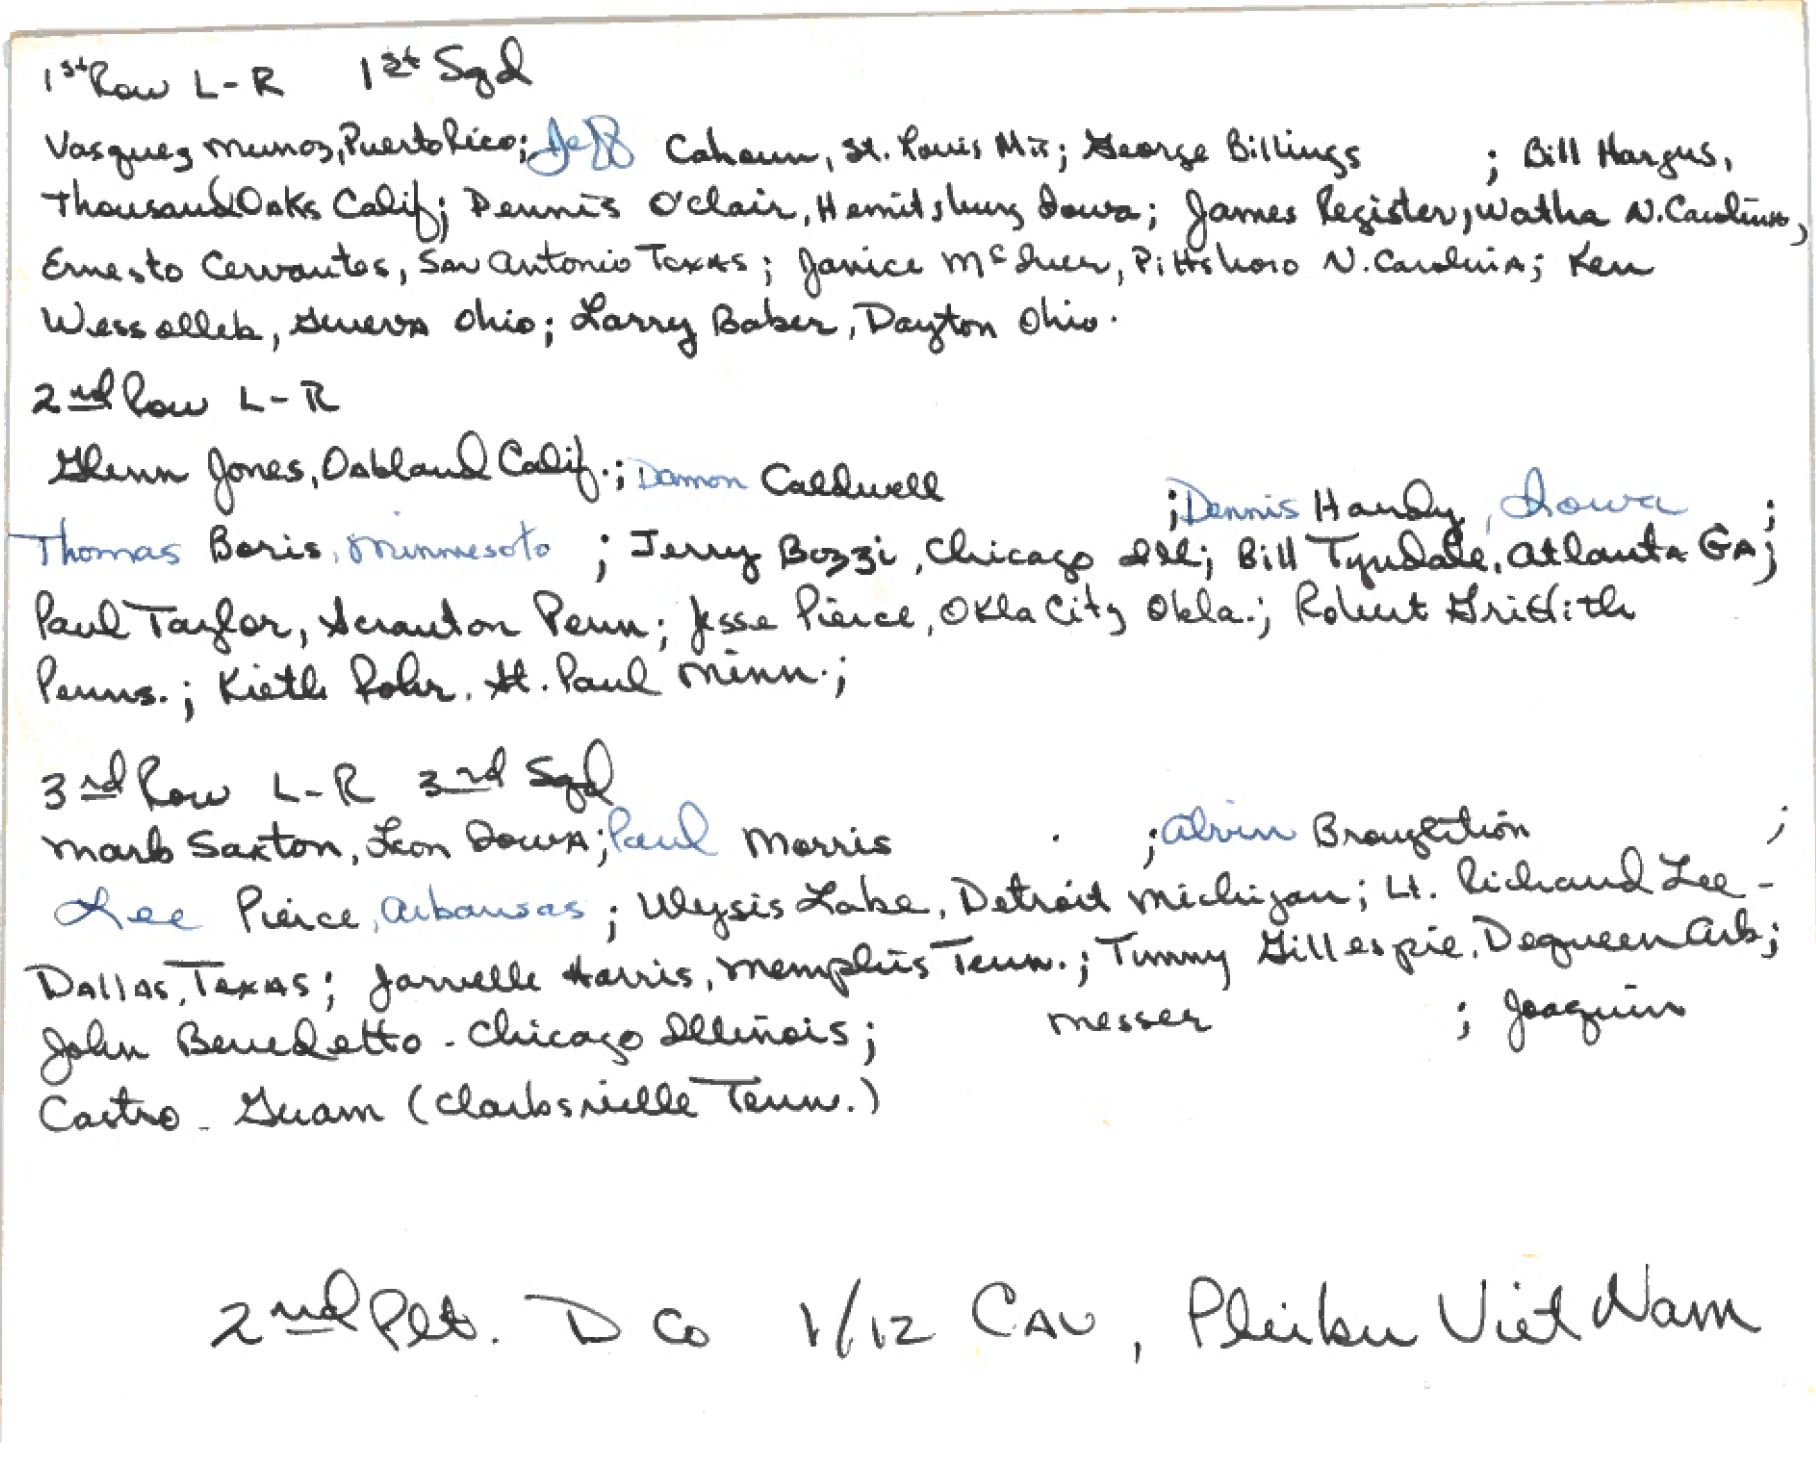 1st Row L-R 1st Sqd
Vasquez Munoz, Puerto Rico; Jeff Cahoun, St. Louis ; George Billings ; Bill Hargus,
Thousand Oaks Calif; Dennis O'clair, Iowa; James Register, Watha N. Carolina,
Ernesto Cervantes, San Antonio Texas; Janice , Pittsboro N. Carolina; Ken
Wessolleb, Geneva Ohio; Larry Baber, Dayton Ohio.
2nd Row L-R
Glenn Jones, Oakland Calif.; Damon Caldwell ; Dennis Handy, Iowa ;
Thomas Boris, Minnesoto ; Jerry Bozzi, Chicago Ill; Bill Tyndale, Atlanta GA;
Paul Taylor, Scranton Penn; Jesse Pierce, Okla City Okla.; Robert Griffith
Penns.; Kieth Rohr, St. Paul Minn.;
3rd Row L-R 3rd Sqd
Mark Saxton, Leon Iowa; Paul Morris ; Alvin Broughtion ;
Lee Pierce, Arkansas ; Ulysis Lake, Detroit Michigan; Lt. Richard Lee -
Dallas, Texas; Jarvelle Harris, Memphis Tenn.; Timmy Gillespie, Dequeen Ark;
John Benedetto - Chicago Illinois; Messer ; Joaquin
Castro - Guam (Clarksville Tenn.)
2nd Plt. D Co 1/12 Cav, Pleiku Viet Nam